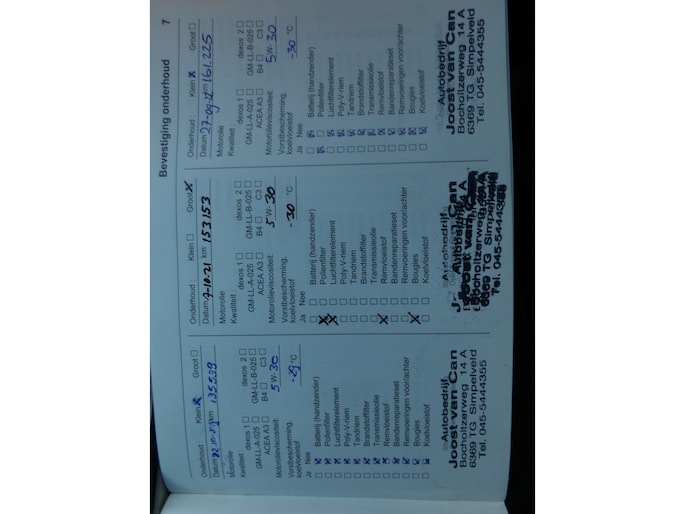 Bevestiging onderhoud 7
Onderhoud : Klein Groot
Datum km 135539
Motorolie
Kwaliteit : dexos 1 dexos 2
GM-LL-A-025 GM-LL-B-025
ACEA A3 B4 C3
Motorolieviscositeit: 5 W- 30
Vorstbescherming, koelvloeistof -29 °C
Ja Nee
Batterij (handzender)
Pollenfilter
Luchtfilterelement
Poly-V-riem
Tandriem
Brandstoffilter
Transmissieolie
Remvloeistof
Bandenreparatieset
Remvoeringen voor/achter
Bougies
Koelvloeistof
Autobedrijf
Joost van Can
Bocholtzerweg 14 A
6369 TG Simpelveld
Tel. 045-5444355
Onderhoud : Klein Groot
Datum 7-10.21 km 153153
Motorolie
Kwaliteit : dexos 1 dexos 2
GM-LL-A-025 GM-LL-B-025
ACEA A3 B4 C3
Motorolieviscositeit: 5 W- 30
Vorstbescherming, koelvloeistof -30 °C
Ja Nee
Batterij (handzender)
Pollenfilter
Luchtfilterelement
Poly-V-riem
Tandriem
Brandstoffilter
Transmissieolie
Remvloeistof
Bandenreparatieset
Remvoeringen voor/achter
Bougies
Koelvloeistof
Autobedrijf
Joost van Can
Bocholtzerweg 14 A
6369 TG Simpelveld
Tel. 045-5444355
Onderhoud : Klein Groot
Datum km 161.225
Motorolie
Kwaliteit : dexos 1 dexos 2
GM-LL-A-025 GM-LL-B-025
ACEA A3 B4 C3
Motorolieviscositeit: 5 W- 30
Vorstbescherming, koelvloeistof -30 °C
Ja Nee
Batterij (handzender)
Pollenfilter
Luchtfilterelement
Poly-V-riem
Tandriem
Brandstoffilter
Transmissieolie
Remvloeistof
Bandenreparatieset
Remvoeringen voor/achter
Bougies
Koelvloeistof
Autobedrijf
Joost van Can
Bocholtzerweg 14 A
6369 TG Simpelveld
Tel. 045-5444355